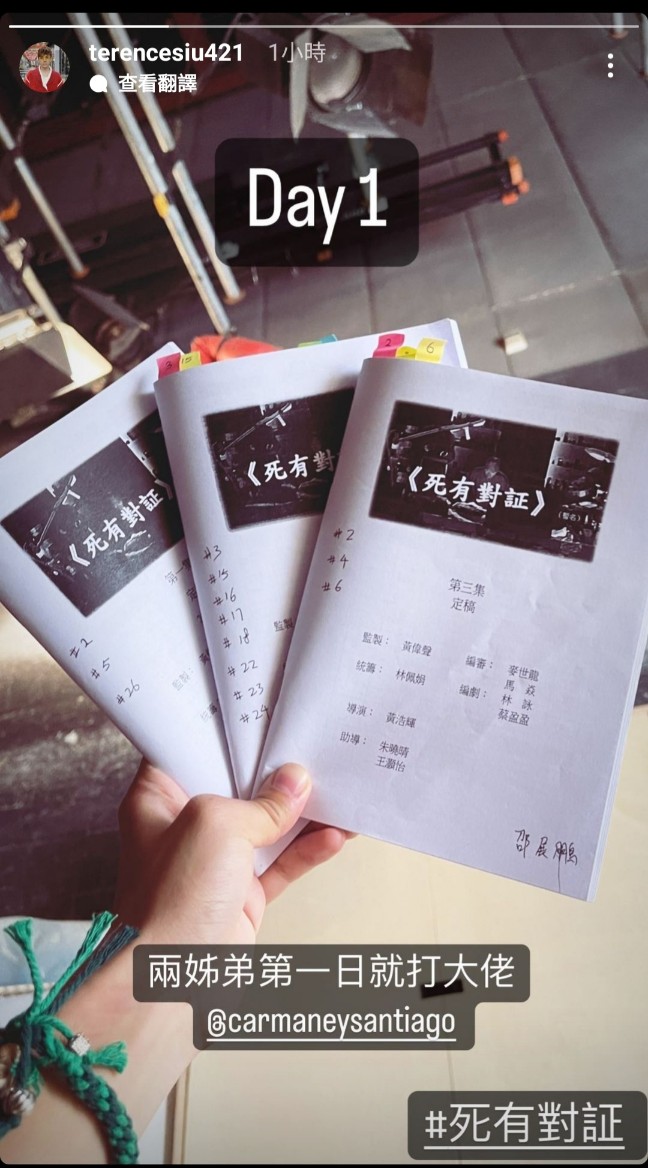 terencesiu421 1小時
查看翻譯
Day 1
3
15
2
6
《死有對証》
#2
#5
#26
第一
監製：
統籌
《死有對
#3
#15
#16
#17
#18
#22
#23
#24
監製
《死有對証》
#2
#4
#6
第三集
定稿
監製： 黃偉聲
統籌： 林佩娟
導演： 黃浩輝
助導： 朱曉晴
王灝怡
編審： 麥世龍
編劇： 馬 焱
林 詠
蔡盈盈
邵展鵬
兩姊弟第一日就打大佬
@carmaneysantiago
#死有對証